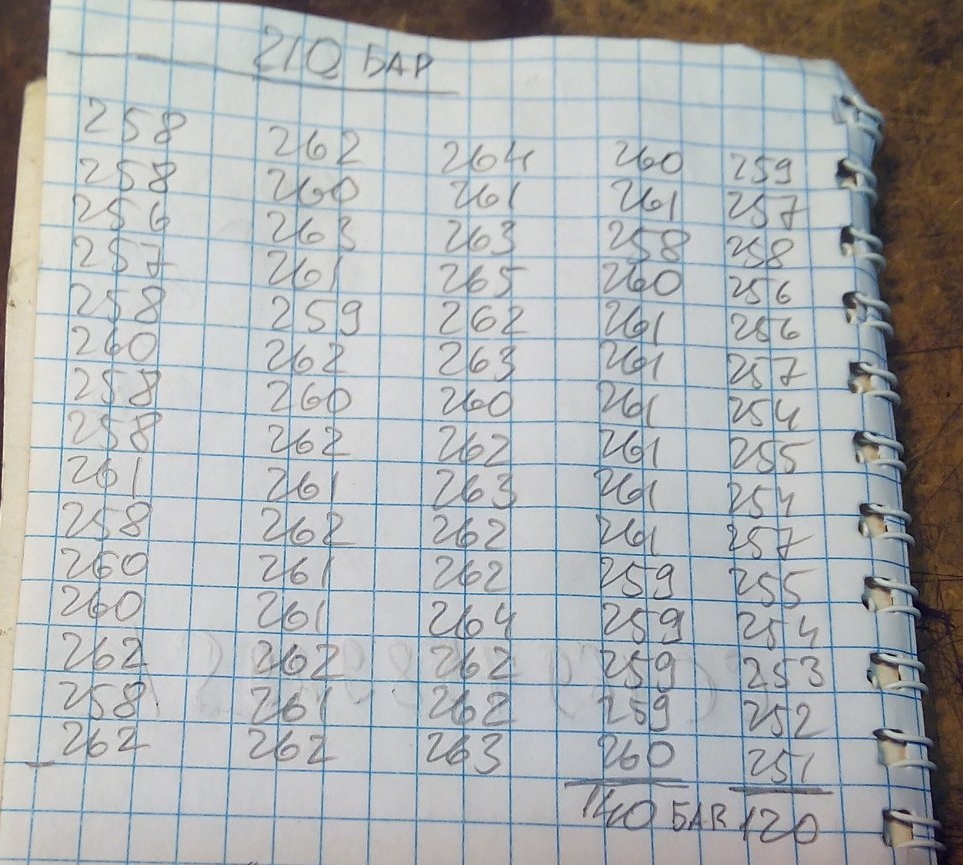 210 БАР
258 262 264 260 259
258 260 261 261 257
256 263 263 258 258
257 261 265 260 256
258 259 262 261 256
260 262 263 261 257
258 260 260 261 254
258 262 262 261 255
261 261 263 261 254
258 262 262 261 257
260 261 262 259 255
260 261 264 259 254
262 262 262 259 253
258 261 262 259 252
262 262 263 260 251
140 БАR 120